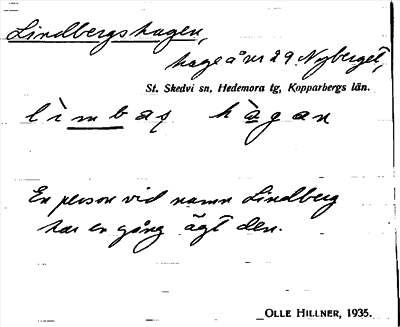 Lindbergshagen,
hage å nr 29 Nyberget,
St. Skedvi sn, Hedemora tg, Kopparbergs län.
lìmbas hàgan
En person vid namn Lindberg
har en gång ägt den.
OLLE HILLNER, 1935.